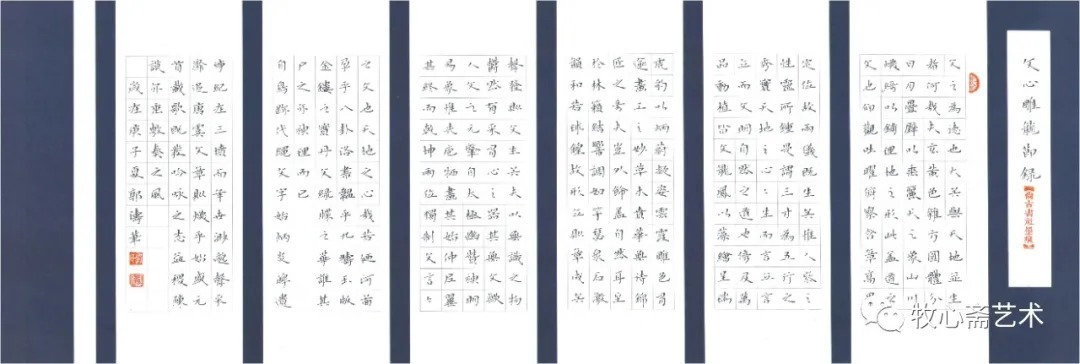 文心雕龍節錄
文之為德也大矣與天地並生
者何哉夫玄黃色雜方圓體分
日月疊璧以垂麗天之象山川
煥綺以鋪理地之形此蓋道之
文也仰觀吐曜俯察含章高卑
定位故兩儀既生矣惟人參之
性靈所鍾是謂三才為五行之
秀實天地之心心生而言立言
立而文明自然之道也傍及萬
品動植皆文龍鳳以藻繪呈瑞
虎豹以炳蔚凝姿雲霞雕色有
踰畫工之妙草木賁華無待錦
匠之奇夫豈外飾蓋自然耳至
於林籟結響調如竽瑟泉石激
韻和若球鍠故形立則章成矣
聲發則文生矣夫以無識之物
鬱然有采有心之器其無文歟
人文之元肇自太極幽贊神明
易象惟先庖犧畫其始仲尼翼
其終而乾坤兩位獨制文言言
之文也天地之心哉若迺河圖
孕乎八卦洛書韞乎九疇玉版
金鏤之實丹文綠牒之華誰其
尸之亦神理而已
自鳥跡代繩文字始炳炎皞遺
事紀在三墳而年世渺邈聲采
靡追唐虞文章則煥乎始盛元
首載歌既發吟詠之志益稷陳
謨亦垂敷奏之風
歲在庚子夏郭濤
牧心斋艺术